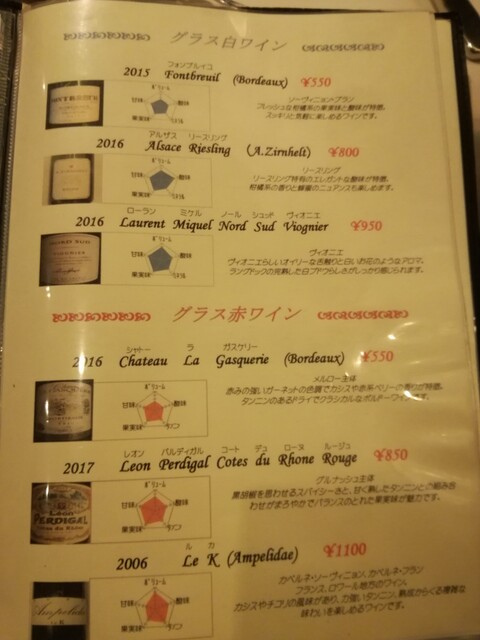 グラス白ワイン
フォンブルイユ
2015 Fontbreuil (Bordeaux) ¥550
ボリューム
甘味 酸味
果実味 ミネラル
ソーヴィニヨン・ブラン
フレッシュな柑橘系の果実味と酸味が特徴。
スッキリと気軽に楽しめるワインです。
アルザス リースリング
2016 Alsace Riesling (A.Zirnhelt) ¥800
ボリューム
甘味 酸味
果実味 ミネラル
リースリング
リースリング特有のエレガントな酸味が特徴。
柑橘系の香りと蜂蜜のニュアンスも楽しめます。
ローラン ミケル ノール シュッド ヴィオニエ
2016 Laurent Miquel Nord Sud Viognier ¥950
ボリューム
甘味 酸味
果実味 ミネラル
ヴィオニエ
ヴィオニエらしいオイリーな舌触りと白いお花のようなアロマ。
ラングドックの完熟した白ブドウらしさがしっかり感じられます。
グラス赤ワイン
シャトー ラ ガスケリー
2016 Chateau La Gasquerie (Bordeaux) ¥550
ボリューム
甘味 酸味
果実味 タンニン
メルロー主体
赤みの強いガーネットの色調でカシスや赤系ベリーの香りが特徴。
タンニンのあるドライでクラシカルなボルドーワインです。
レオン パルディガル コート デュ ローヌ ルージュ
2017 Leon Perdigal Cotes du Rhone Rouge ¥850
Léon
PERDIGAL
ボリューム
甘味 酸味
果実味 タンニン
グルナッシュ主体
黒胡椒を思わせるスパイシーさと、甘く熟したタンニンとの組み合
わせがまろやかでバランスのとれた果実味が魅力です。
ル カ
2006 Le K (Ampelidae) ¥1100
Ampelidae
ボリューム
甘味 酸味
果実味 タンニン
カベルネ・ソーヴィニヨン、カベルネ・フラン
フランス、ロワール地方のワイン。
カシスやチコリの風味があり、力強いタンニン、熟成からくる複雑な
味わいを楽しめるワインです。